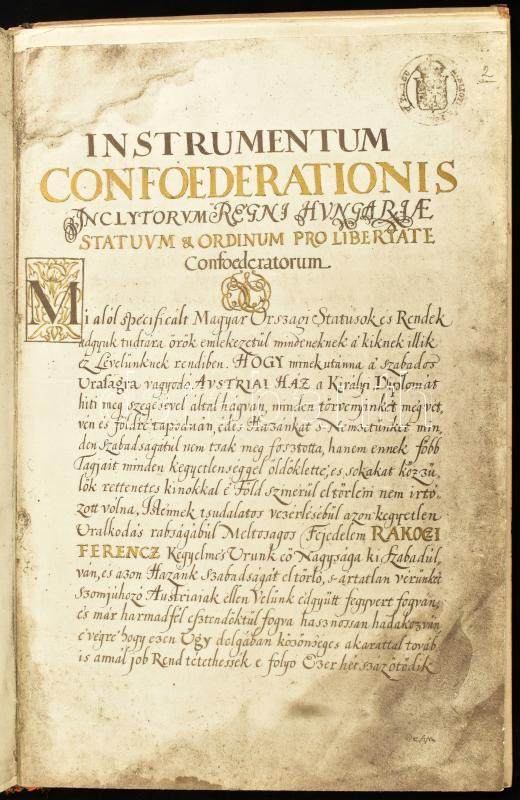 2
INSTRUMENTUM
CONFOEDERATIONIS
INCLYTORVM REGNI HVNGARIÆ
STATUVM & ORDINUM PRO LIBERTATE
Confoederatorum
Mi alól specificált Magyar Országi Statusok es Rendek
adgyuk tudtára örök emlekezetül mindeneknek á kiknek illik
ez Levelünknek rendiben. HOGY minekutánna á szabados
Uraságra vágyódó AVSTRIAI HÁZ á Királyi Diplomát
hiti meg szegésével által hágván, minden törvenyinket megvét,
ven és földre tapodván, edes Hazánkat s Nemzetünket min,
den szabadságátul nem tsak meg fosztotta, hanem ennek főbb
Tagjait minden kegyetlenséggel öldöklötte, es sokakat közzü,
lök rettenetes kinokkal e Föld szinerül eltörleni nem irtó,
zott vólna, Istennek tsudalatos vezérlésébül azon kegyetlen
Uralkodás rabságábul Meltosagos Fejedelem RÁKOCZI
FERENCZ Kegyelmes Urunk eö Nagysága ki szabadúl,
ván, és azon Hazánk szabadságát eltörlö, s ártatlan verünket
szomjuhozó Austriaiak ellen Velünk edgyütt fegyvert fogván,
és már harmadfél esztendöktül fogva hasznossan hadakozván
é végre hogy ezen Ügy dolgában közönséges akarattal továb,
is annál job Rend tétethessék e folyo Ezer hét száz ötödik